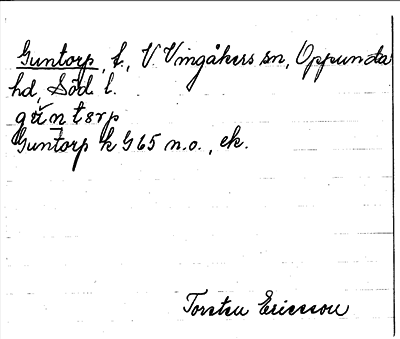 Guntorp, t., V. Vingåkers sn, Oppunda
hd, Söd. l.
gun̲tərp
Guntorp k G 65 n.o., ek.
Torsten Ericsson